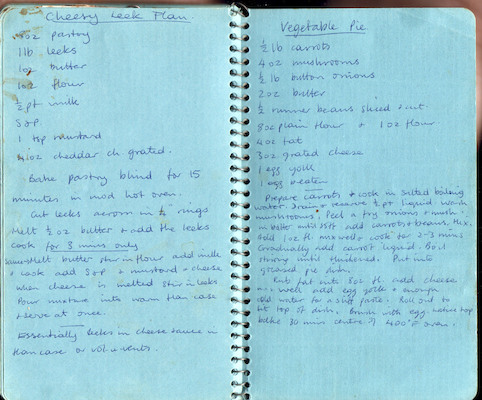 Cheesy Leek Flan.
8oz pastry
1lb leeks
1oz butter
1oz flour
½pt milk
S&P
1 tsp mustard
4oz cheddar ch grated.
Bake pastry blind for 15
minutes in mod hot oven.
Cut leeks across in ½" rings
Melt ½oz butter & add the leeks
cook for 3 mins only
Melt butter stir in flour add milk
& cook add S&P & mustard & cheese
when cheese is melted stir in leeks
Pour mixture into warm flan case
& serve at once.
Essentially leeks in cheese sauce in
flan case or vol-u-vents.
Vegetable Pie
½lb carrots
4oz mushrooms
½lb button onions
2oz butter
½ runner beans sliced & cut.
8oz plain flour + 1oz flour
4oz fat
3oz grated cheese
1 egg yolk
1 egg beaten
Prepare carrots & cook in salted boiling
water. Drain & reserve ½pt liquid. Wash
mushrooms. Peel & fry onions & mush.
in butter until soft add carrots & beans. Mix.
Add 1oz fl. mix well & cook for 2-3 mins
Gradually add carrot liquid. Boil
stirring until thickened. Put into
greased pie dish.
Rub fat into 8oz fl. add cheese
mix well add egg yolk & enough
cold water for a stiff paste. Roll out to
fit top of dish. Brush with egg. top
bake 30 mins centre of 400°F oven.